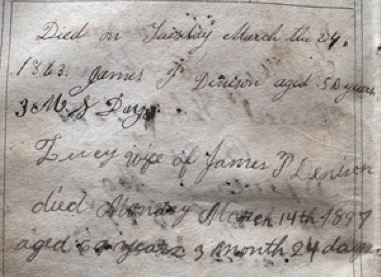 Died on Tuesday March the 24.
1863. James P Denison aged 50 years
3 M. 8 Days.
Lucy wife of James P Denison
died Monday March 14th 1897
aged years 3 month 24 days